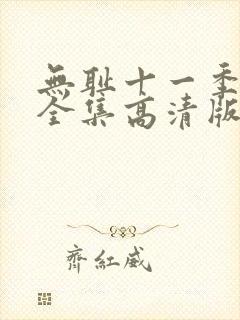 無耻十一季
全集高清版
齊紅威